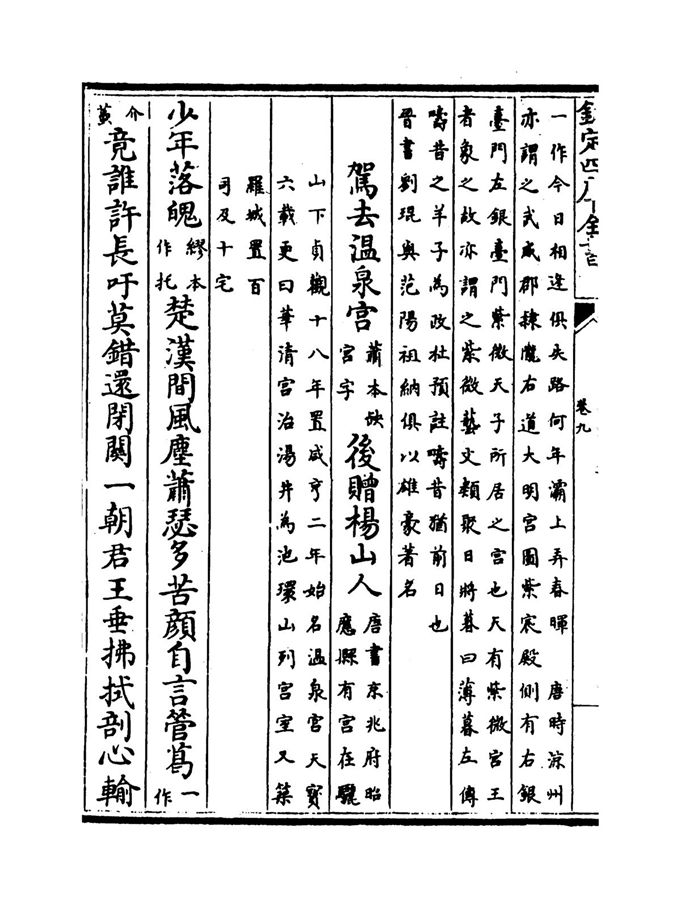 欽定四庫全書
卷九
一作今日相逢俱失路何年灞上弄春暉　唐時涼州
亦謂之武威郡隸隴右道大明宫圖紫宸殿側有右銀
臺門左銀臺門紫微天子所居之宫也天有紫微宫王
者象之故亦謂之紫微藝文類聚日將暮曰薄暮左傳
疇昔之羊子為政杜預註疇昔猶前日也
晉書劉琨與范陽祖納俱以雄豪著名
駕去温泉宫蕭本缺宫字後贈楊山人唐書京兆府昭應縣有宫在驪
山下貞觀十八年置咸亨二年始名温泉宫天寳
六載更曰華清宫治湯井為池環山列宫室又築
羅城置百
司及十宅
少年落魄繆本作托楚漢間風塵蕭瑟多苦顔自言管葛一作
介竟誰許長吁莫錯還閉關一朝君王垂拂拭剖心輸